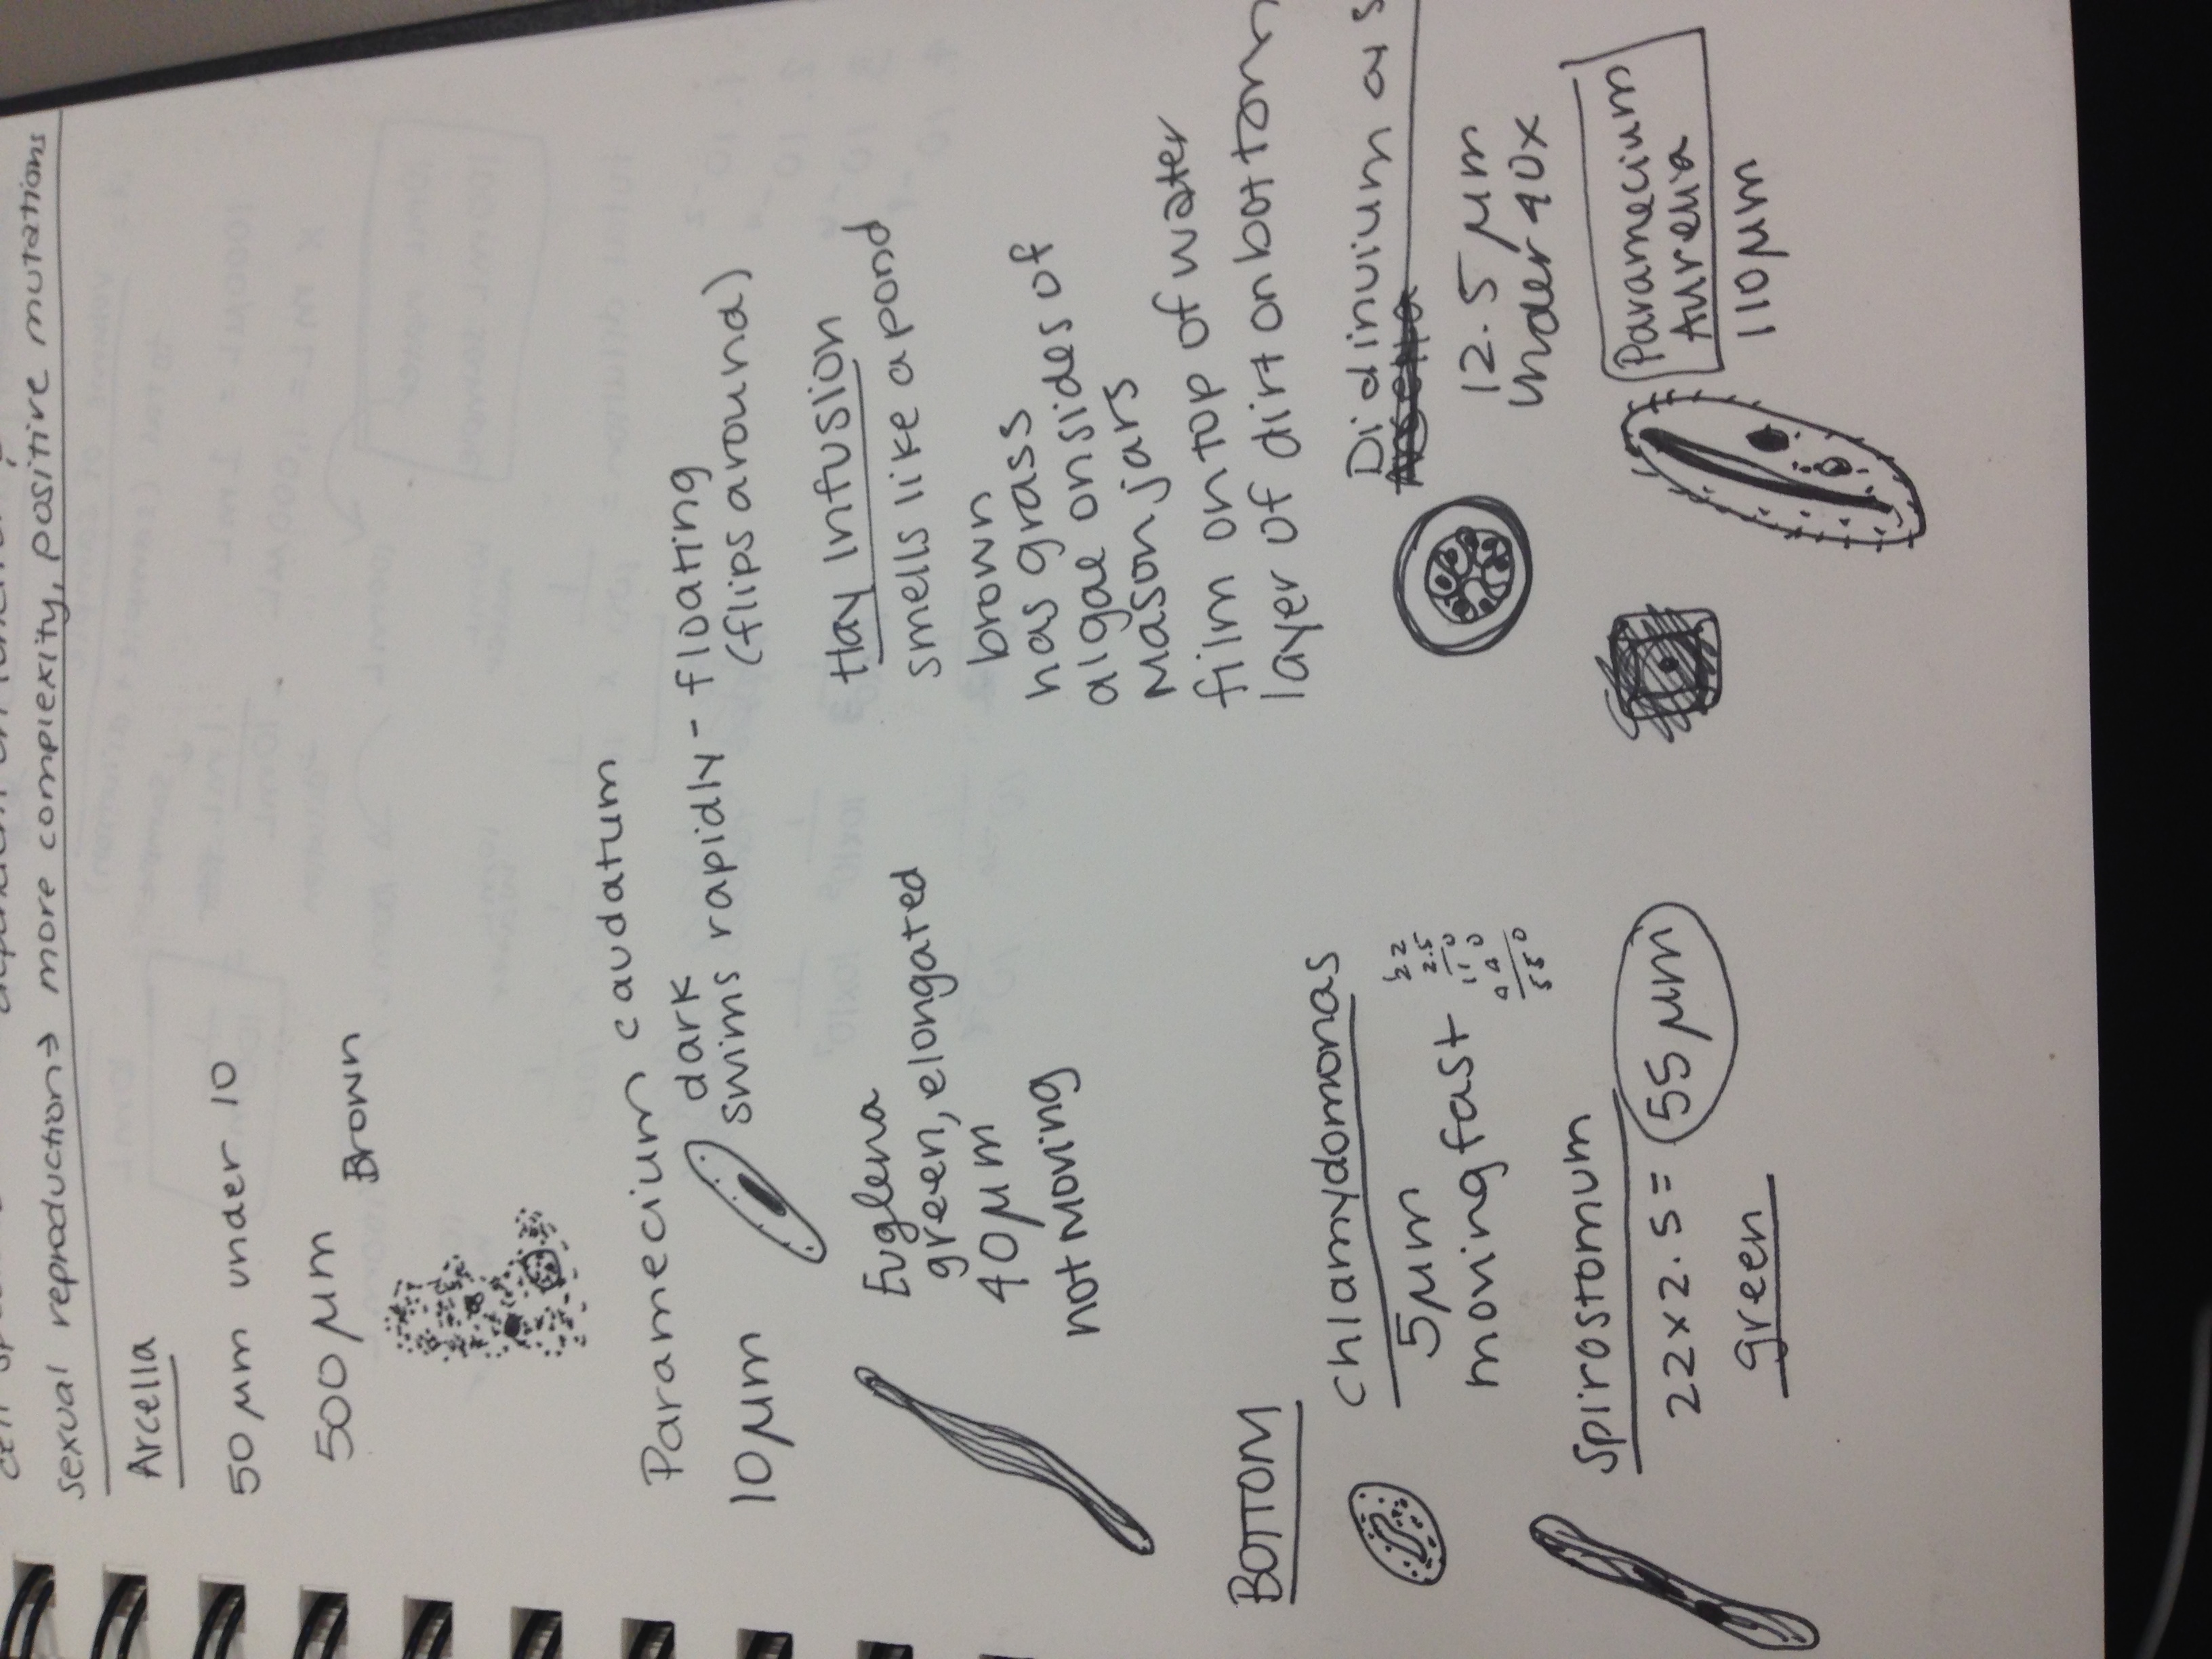 sexual reproduction → more complexity, positive mutations
Arcella
50 µm under 10
500 µm
Brown
Paramecium caudatum
10µm
dark
swims rapidly - floating
(flips around)
Euglena
green, elongated
40µm
not moving
Hay Infusion
smells like a pond
brown
has grass
algae on sides of
mason jars
film on top of water
layer of dirt on bottom
BOTTOM
Chlamydomonas
5µm
moving fast
22
2.5
110
550
Spirostomum
22x2.5= 55 µm
green
Didinuium
12.5 µm
under 40x
Paramecium
Aurelia
110µm